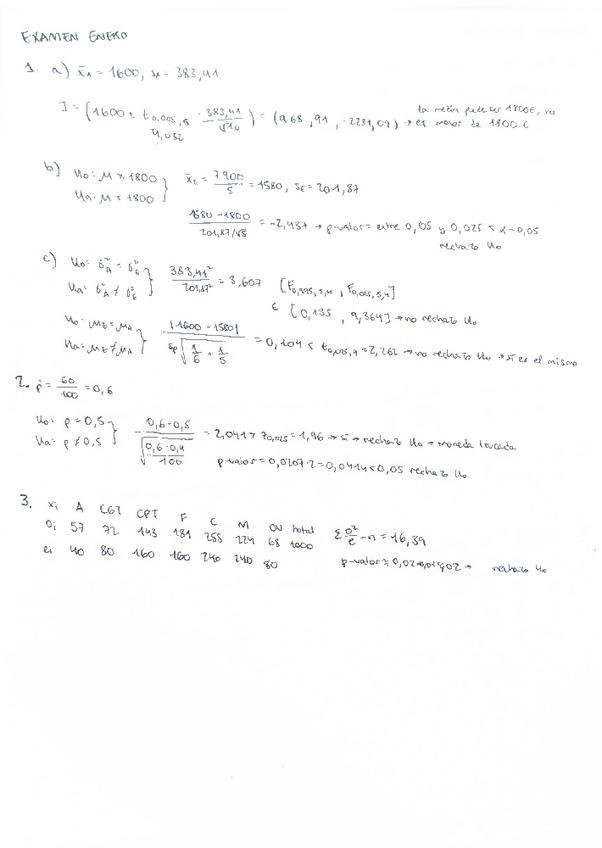 EXAMEN ENERO
1. a) x̄A = 1600, sA = 383,41
I = (1600 ± t0,005,5 · 383,41/√10) = (968,91, 2231,09) → la media puede ser 1800€, no es menor de 1800 €
4,032
b) H0: μ = 1800
Ha: μ < 1800
x̄E = 7900/5 = 1580, sE = 201,87
1580 - 1800 / 201,87/√5 = -2,437 → p-valor = entre 0,05 y 0,025 < α = 0,05
rechazo H0
c) H0: σ²A = σ²E
Ha: σ²A ≠ σ²E
383,41² / 201,87² = 3,607
[F0,995,5,4, F0,025,5,4]
∈ [0,135, 9,364] → no rechazo H0
H0: μE = μA
Ha: μE ≠ μA
|1600 - 1580| / Sp √(1/6 + 1/5) = 0,104 < t0,025,9 = 2,262 → no rechazo H0 → sí es el mismo
2. p̂ = 60/100 = 0,6
H0: p = 0,5
Ha: p ≠ 0,5
0,6 - 0,5 / √(0,6·0,4/100) = 2,041 > z0,025 = 1,96 → sí → rechazo H0 → moneda trucada
p-valor = 0,0207·2 = 0,0414 < 0,05 rechazo H0
3. xi A CGT CPT F C M ON total
Oi 57 72 143 181 255 224 68 1000
ei 40 80 160 160 240 240 80
Σ o²/e - n = 16,39
p-valor = rechazo H0